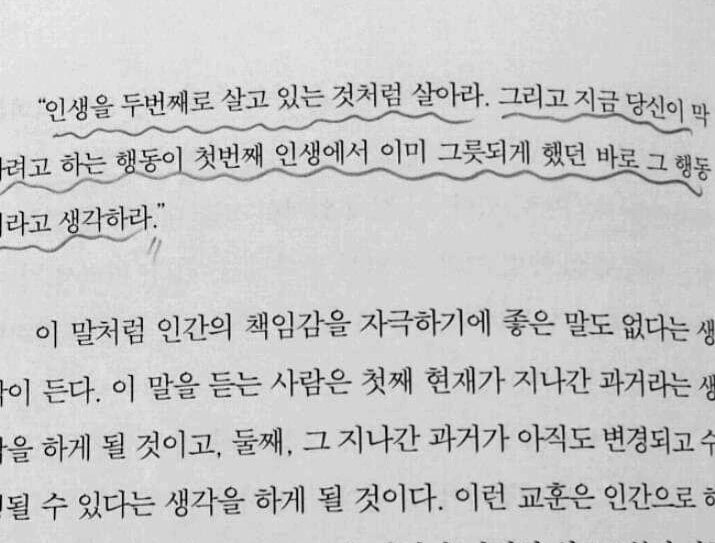 “인생을 두번째로 살고 있는 것처럼 살아라. 그리고 지금 당신이 막
하려고 하는 행동이 첫번째 인생에서 이미 그릇되게 했던 바로 그 행동
이라고 생각하라.”
이 말처럼 인간의 책임감을 자극하기에 좋은 말도 없다는 생
각이 든다. 이 말을 듣는 사람은 첫째 현재가 지나간 과거라는 생
각을 하게 될 것이고, 둘째, 그 지나간 과거가 아직도 변경되고 수
될 수 있다는 생각을 하게 될 것이다. 이런 교훈은 인간으로 하